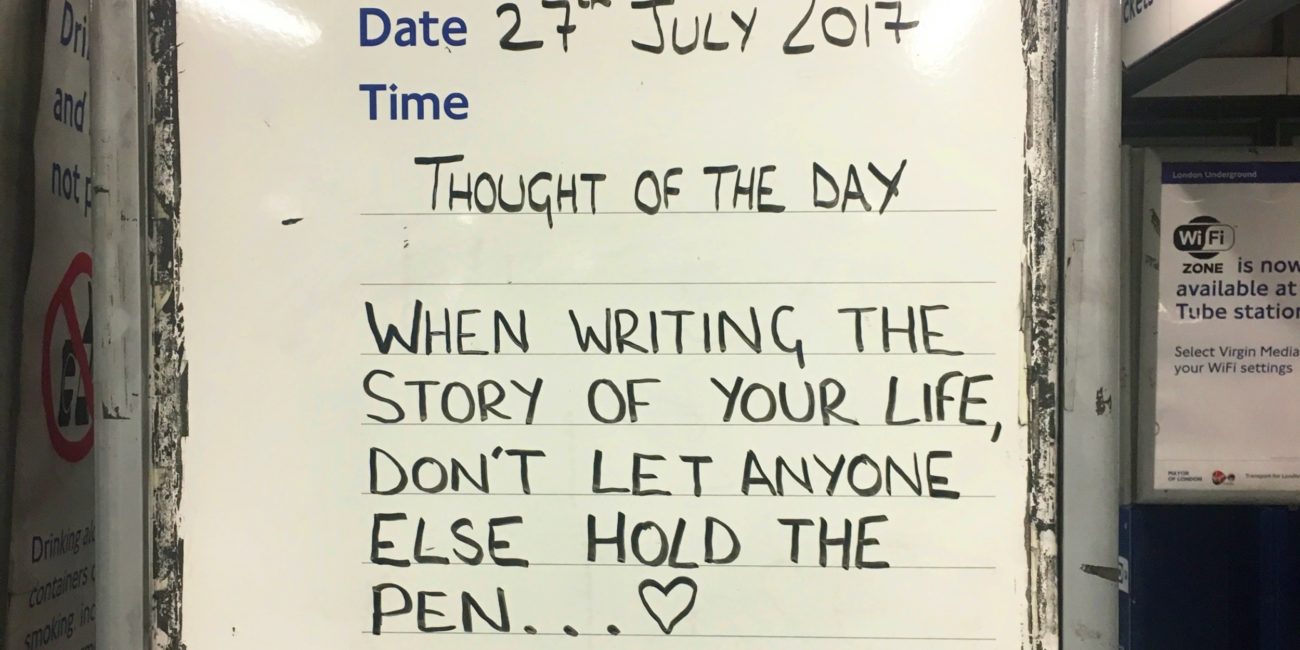 Date 27th JULY 2017
Time
THOUGHT OF THE DAY
WHEN WRITING THE
STORY OF YOUR LIFE,
DON'T LET ANYONE
ELSE HOLD THE
PEN...♡
and
not
Drinking
containers
smoking.
London Underground
WiFi
ZONE is now
available at
Tube
Select Virgin Media
your WiFi settings
MAYOR
OF LONDON
Transport for London